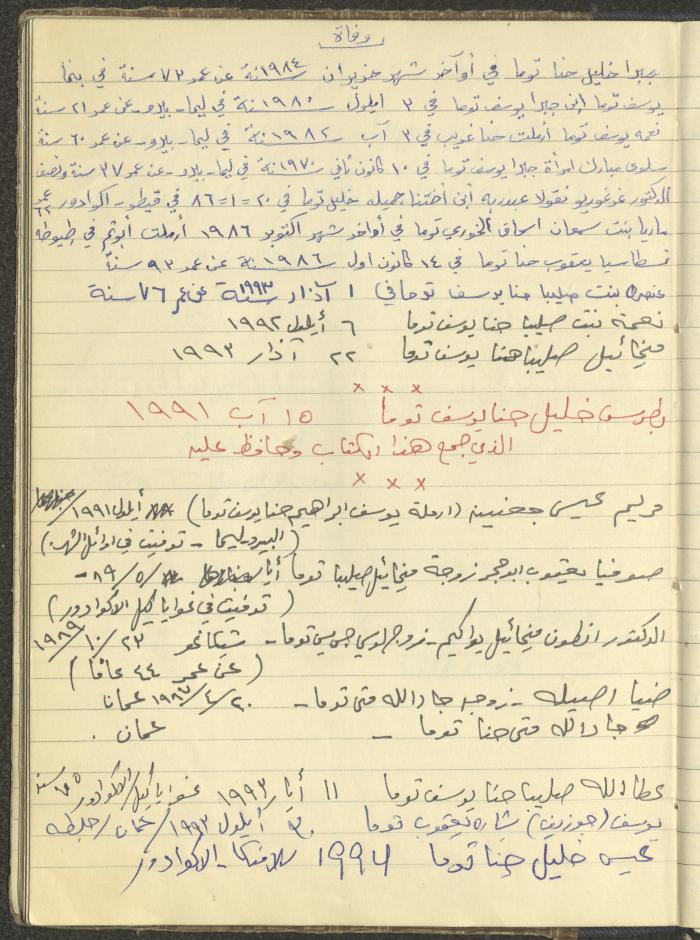 وفاة
جبرا خليل حنا توما في أوآخر شهر حزيران سنة ١٩٨٤ عن عمر ٧٣ سنة في بنما
يوسف توما ابن جبرا يوسف توما في ٣ ايلول سنة ١٩٨٠ في ليما - بيرو - عن عمر ٢١ سنة
نعمه يوسف توما أرملت حنا غريب في ٣ آب سنة ١٩٨٢ في ليما - بيرو - عن عمر ٦٠ سنة
سلوى مبارك امرأة جبرا يوسف توما في ١٠ كانون ثاني سنة ١٩٧٠ في ليما - بيرو - عن عمر ٣٧ سنة ونصف
الدكتور غرغوريو نقولا عبدربه أبن أختنا جميله خليل توما في ٢٠=١=٨٦ في قيطو - اكوادور عمر ٦٢
ماريا بنت سمعان اسحاق الخوري توما في أواخر شهر اكتوبر ١٩٨٦ أرملت أبو في
نسطاسيا يعقوب حنا توما في ١٤ كانون اول سنة ١٩٨٦ عن عمر ٩٣ سنة
عنصره بنت صليبا حنا يوسف توما في ١ آذار سنة ١٩٩٣ عن عمر ٧٦ سنة
نعمة بنت صليبا حنا يوسف توما ٦ أيلول ١٩٩٢
ميخائيل صليبا حنا يوسف توما ٢٢ آذار ١٩٩٣
x x x
بطرس خليل حنا يوسف توما ١٥ آب ١٩٩١
الذي جمع هذا الكتاب وحافظ عليه
x x x
مريم عيسى جعنينه (ارملة يوسف ابراهيم حنا يوسف توما) أيلول ١٩٩١
(البيرو - ليما - توفيت في اوائل الشهر)
صوفيا يعقوب ابو حجر زوجة ميخائيل صليبا توما أيار ٨٩/٥/ -
(توفيت في غواياكيل الاكوادور)
الدكتور انطون ميخائيل يواكيم - زوج لوسي توما - شيكاغو ٢٣/١٠/١٩٨٩
(عن عمر ٤٤ عاما)
ضيا اصيله - زوجة جادالله متى توما - ٢٠/٤/١٩٨٣ عمان
جادالله متى حنا توما - عمان .
عطاالله صليبا حنا يوسف توما ١١ أيار ١٩٩٣ غواياكيل/الاكوادور ٨٥ سنة
يوسف (جوزيف) بشاره يعقوب توما ٣٠ أيلول ١٩٩٣/عمان/جلطه
عيسى خليل حنا توما ١٩٩٤ - الاكوادور